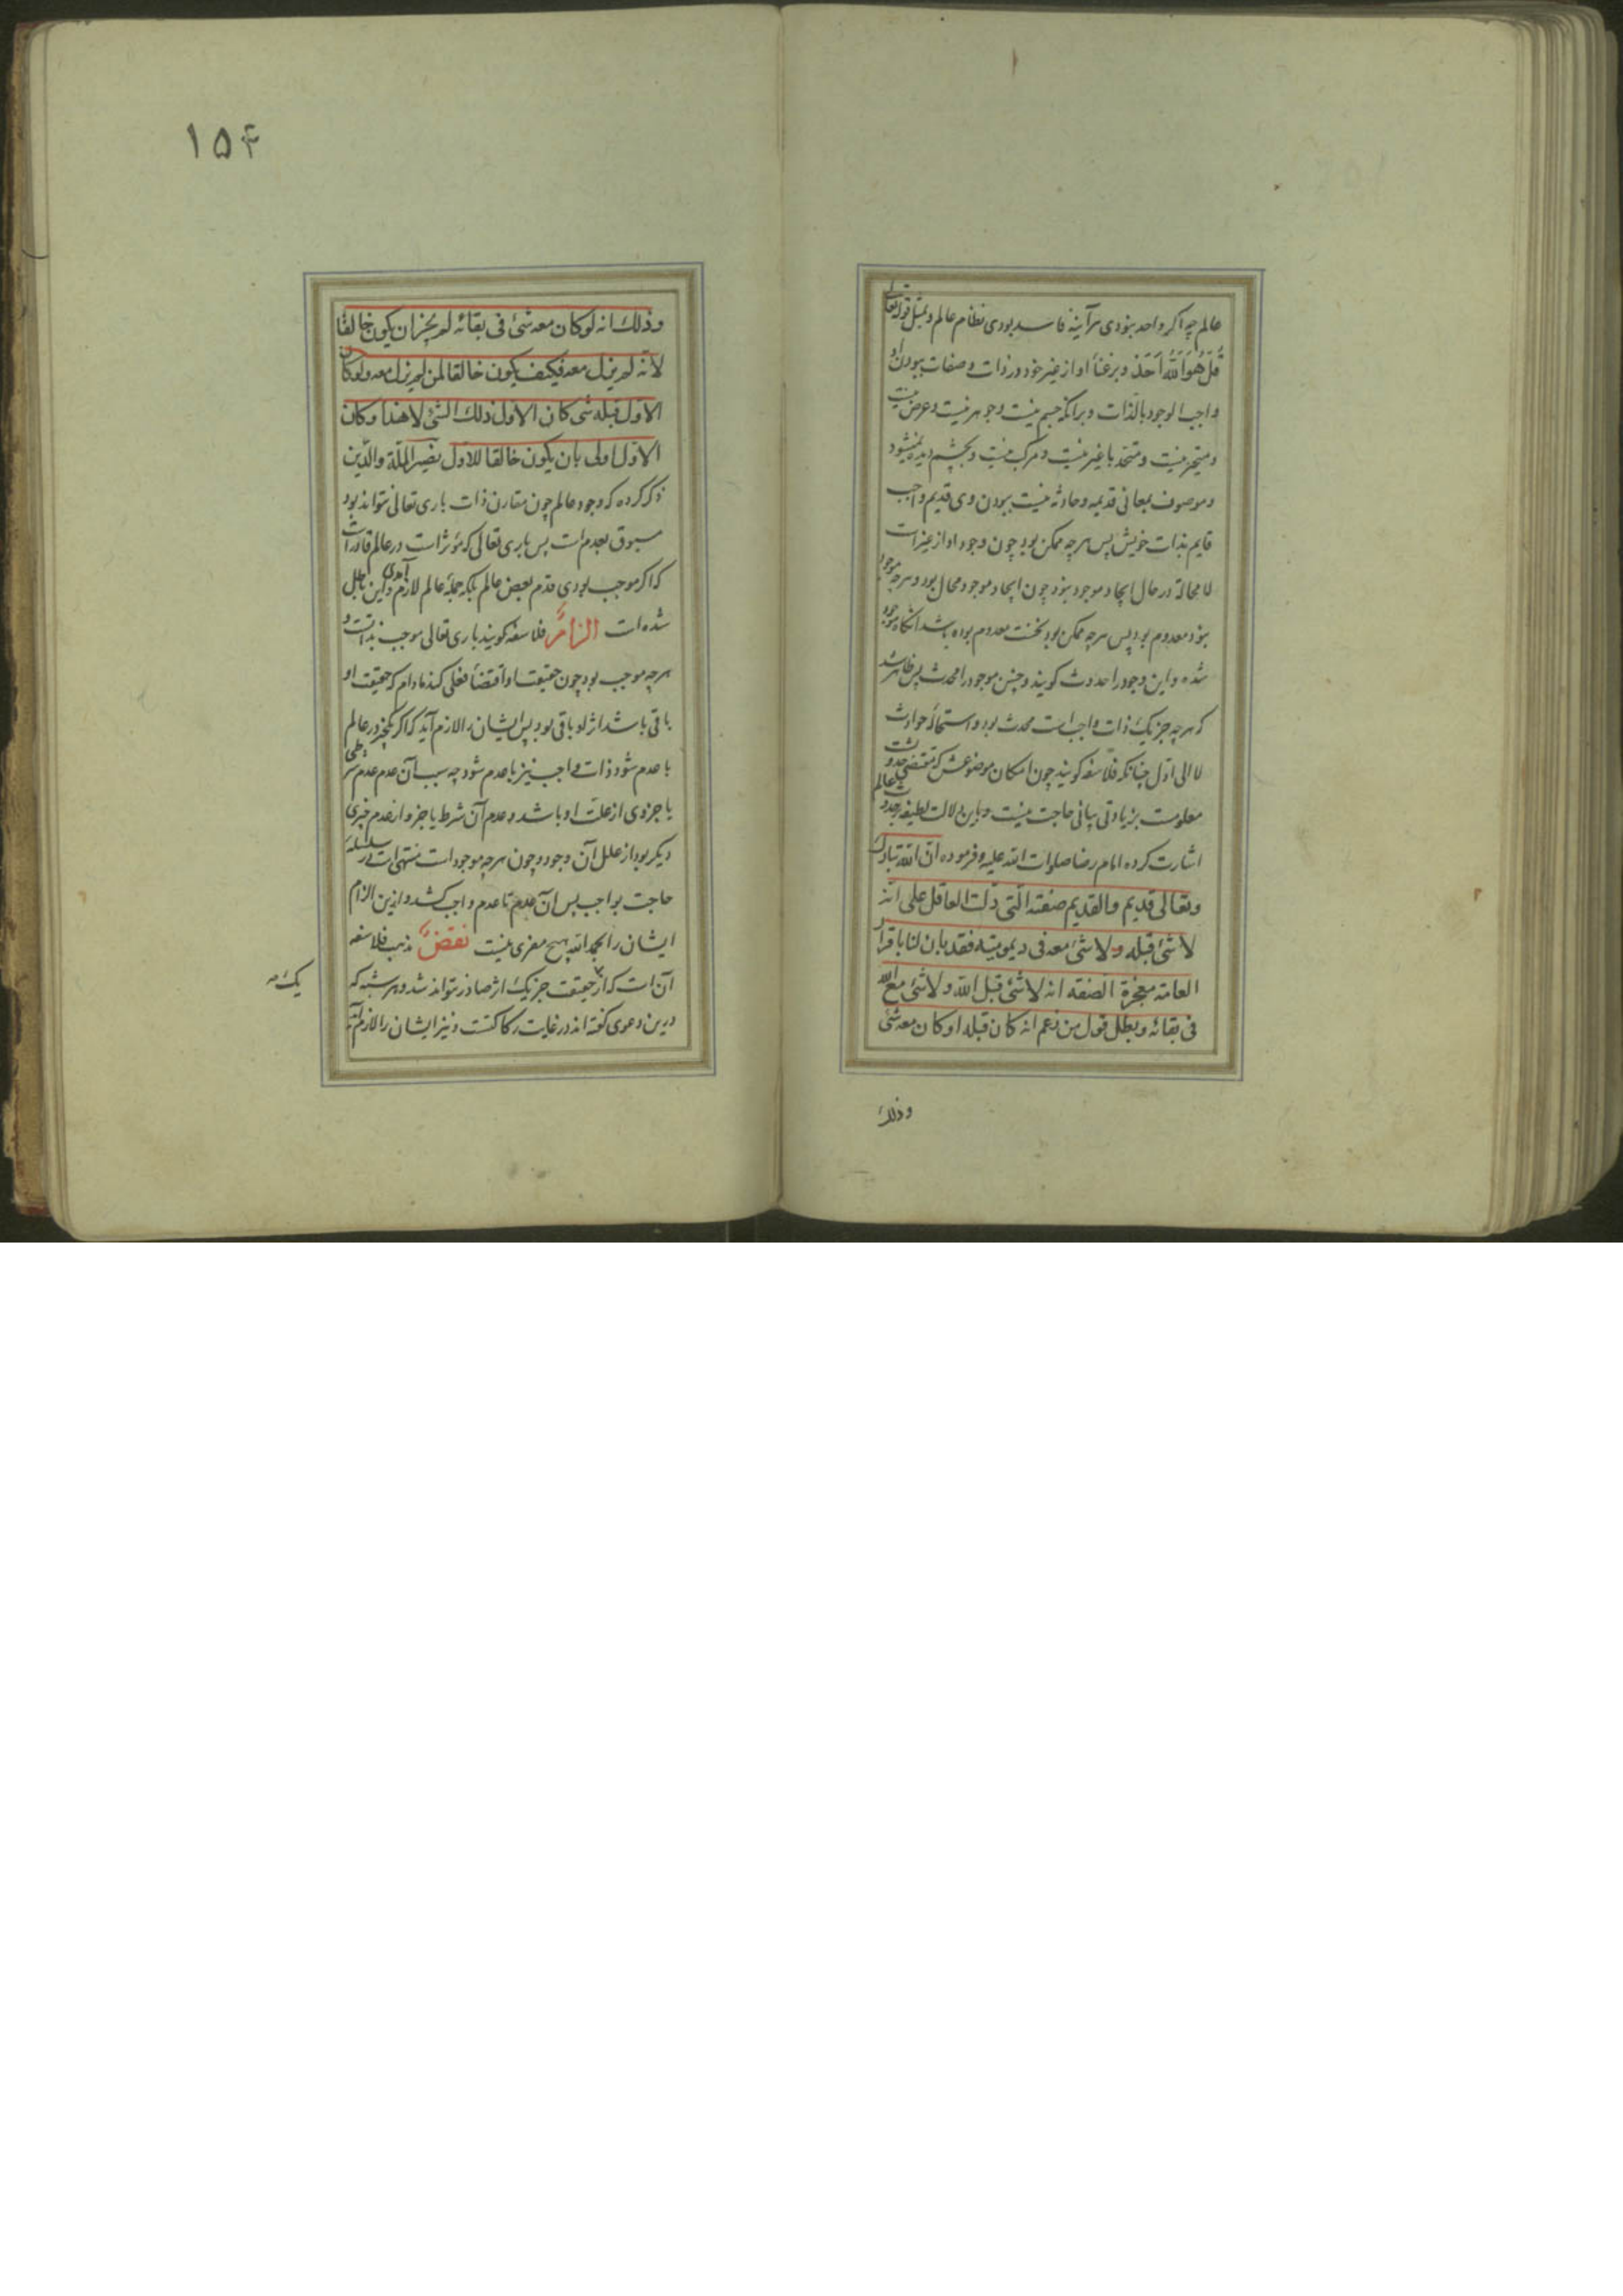 عالم چه اکر واحد نبودی هرآینه فاسد بودی نظام عالم و بمثل قوله تعالی
قُل هُوَ اللهُ اَحَد و بر غناء او از غیر خود در ذات و صفات ببودن او
واجب الوجود بالذات و برانکه جسم نیست و جوهر نیست و عرض نیست
و متحیز نیست و متحد با غیر نیست و مرکب نیست و بچشم دیده نمیشود
و موصوف بمعانی قدیمه و حادثه نیست ببودن وی قدیم واجب
قایم بذات خویش پس هرچه ممکن بود چون وجود او از غیر است
لا محاله در حال ایجاد موجود نبود چون ایجاد موجود محال بود و هرچه موجود
نبود معدوم بود پس هرچه ممکن بود نخست معدوم بوده باشد انکاه موجود
شده و این وجود را حدوث کویند و چنین موجود را محدث پس ظاهر شد
که هرچه جز یک ذات واجب است محدث بود و استحالهٔ حوادث
لا الی اول چنانکه فلاسفه کویند چون امکان موضوعش که مقتضی حدوث است
معلومست بزیادتی بیانی حاجت نیست و باین دلالت لطیفه بر حدوث عالم
اشارت کرده امام رضا صلوات الله علیه و فرموده ان الله تبارک
وتعالی قدیم والقدیم صفته التی دلت العاقل علی انه
لا شئ قبله ولا شئ معه فی دیمومیته فقد بان لنا باقرار
العامة معجزة الصفه انه لا شئ قبل الله ولا شئ مع الله
فی بقائه وبطل قول من زعم انه کان قبله او کان معه شئ
وذلک
۱۵۴
وذلک انه لو کان معه شئ فی بقائه لم یجز ان یکون خالقا
لانه لم یزل معه فکیف یکون خالقا لمن لم یزل معه ولو کان
الاول قبله شی کان الاول ذلک الشئ لا هذا وکان
الاول اولی بان یکون خالقا للاول نصیر الملة والدین
ذکر کرده که وجود عالم چون مقارن ذات باری تعالی نتواند بود
مسبوق بعدم است پس باری تعالی که مؤثر است در عالم قادر است
که اکر موجب بودی قدم بعض عالم بلکه جملهٔ عالم لازم آمدی و این باطل
شده است الزامٌ فلاسفه کویند باری تعالی موجب بذاتست و
هرچه موجب بود چون حقیقت او اقتضاء فعلی کند مادام که حقیقت او
باقی باشد اثر او باقی بود پس ایشان را لازم آید که اکر یکچیز در عالم
با عدم شود ذات واجب نیز با عدم شود چه سبب آن عدم عدم شرطی
یا جزوی از علت او باشد و عدم آن شرط یا جزو از عدم چیزی
دیکر بود از علل آن وجود و چون هرچه موجود است منتهی است در سلسلهٔ
حاجت بواجب پس آن عدم تا عدم واجب کشد و ازین الزام
ایشان را بحمد الله هیچ مفری نیست نقضٌ مذهب فلاسفه
آن است که از حقیقت جز یک اثر صادر نتواند شد و هر شبهه که
درین دعوی کفته اند در غایت رکاکتست و نیز ایشان را لازم آید
یک